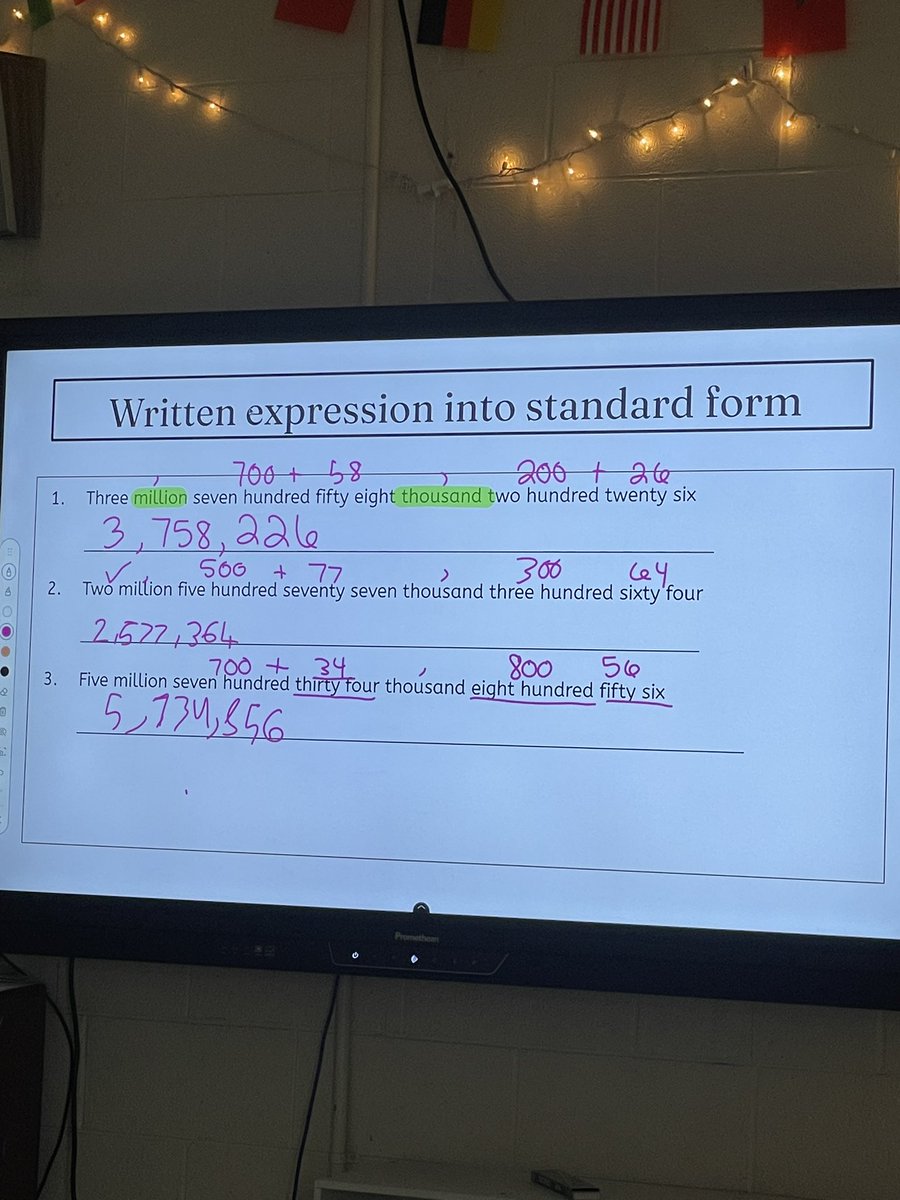 Written expression into standard form
, 700 + 58 , 200 + 26
1. Three million seven hundred fifty eight thousand two hundred twenty six
3,758,226
✓ , 500 + 77 , 300 64
2. Two million five hundred seventy seven thousand three hundred sixty four
2,577,364
700 + 34 , 800 56
3. Five million seven hundred thirty four thousand eight hundred fifty six
5,734,856
Promethean